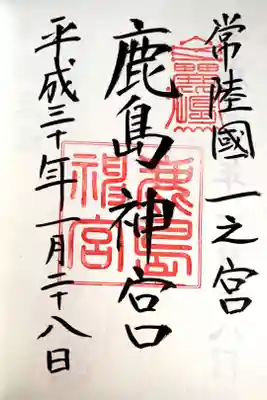 常陸國一之宮
鹿島神宮
平成三十年一月二十八日
鹿島神宮